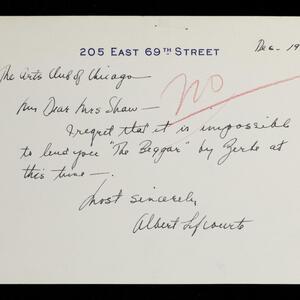 205 EAST 69TH STREET
Dec - 19
The Arts Club of Chicago
NO
My Dear Mrs Shaw —
I regret that it is impossible
to lend you "The Beggar" by Zerbe at
this time —.
Most sincerely
Albert